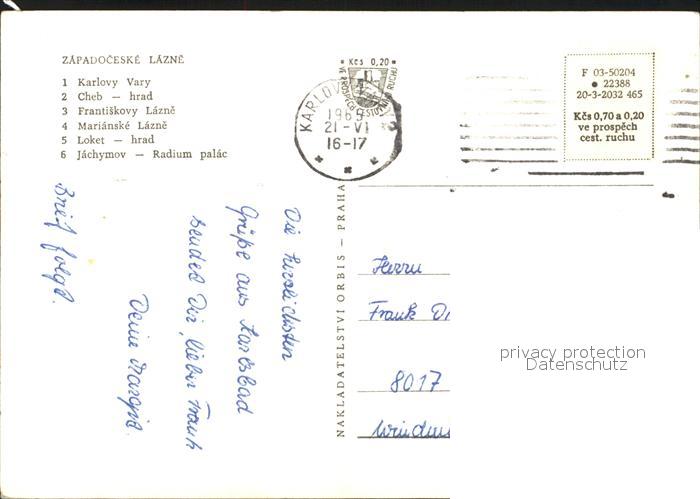 ZÁPADOČESKÉ LÁZNĚ
1 Karlovy Vary
2 Cheb — hrad
3 Františkovy Lázně
4 Mariánské Lázně
5 Loket — hrad
6 Jáchymov — Radium palác
Kčs 0,20
VE PROSPĚCH CESTOVNÍHO RUCHU
KARLOVY
1969
21-VI
16-17
F 03-50204
22388
20-3-2032 465
Kčs 0,70 a 0,20
ve prospěch
cest. ruchu
NAKLADATELSTVÍ ORBIS — PRAHA
Die herzlichsten
Grüße aus Karlsbad
sendet Dir, lieber Frank
Deine
Brief folgt.
Herrn
Frank
8017
privacy protection
Datenschutz